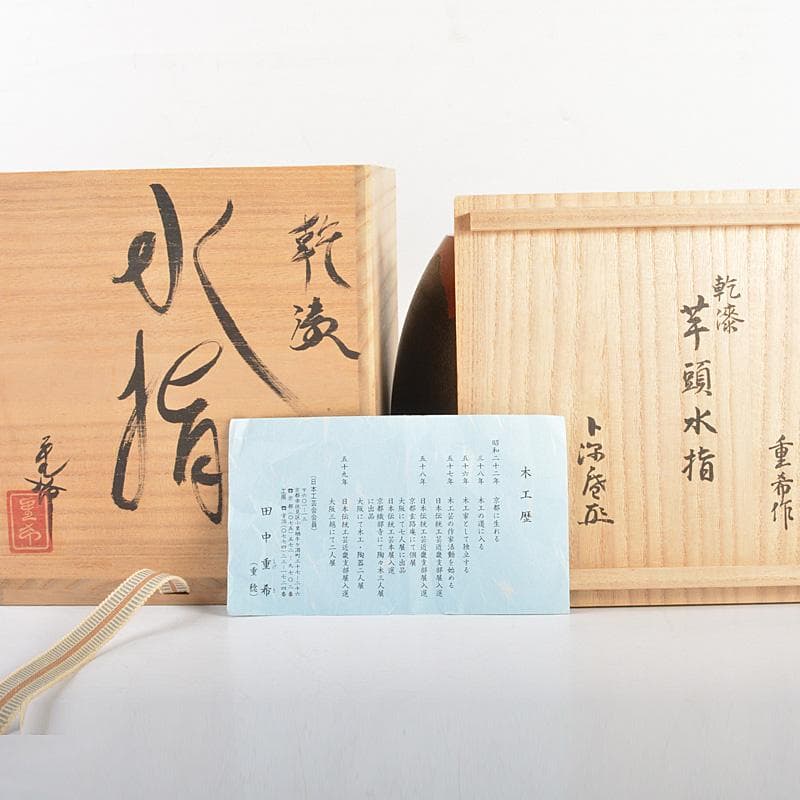 乾漆
水指
重希
重希
乾漆
芋頭水指
重希作
卜深庵
木工歴
昭和二十二年 京都に生れる
三十八年 木工の道に入る
五十六年 木工家として独立する
五十七年 木工芸の作家活動を始める
日本伝統工芸近畿支部展入選
五十八年 日本伝統工芸近畿支部展入選
京都玄路庵にて個展
大阪にて七人展に出品
日本伝統工芸本展入選
京都織成寺にて陶々木三人展
に出品
大阪にて木工・陶器二人展
五十九年 日本伝統工芸近畿支部展入選
大阪三越にて二人展
(日本工芸会会員)
田中重希
(重稔)